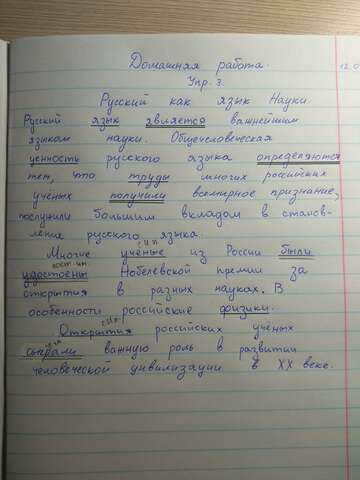 Домашняя работа.
12.0
Упр. 3.
Русский как язык Науки.
Русский язык является важнейшим
языком науки. Общечеловеческая
ценность русского языка определяются
тем, что труды многих российских
учёных получили всемирное признание,
послужили большим вкладом в станов-
ление русского языка.
Многие учёные из России были
удостоены Нобелевской премии за
открытия в разных науках. В
особенности российские физики.
Открытия российских ученых
сыграли важную роль в развитии
человеческой цивилизации в XX веке.